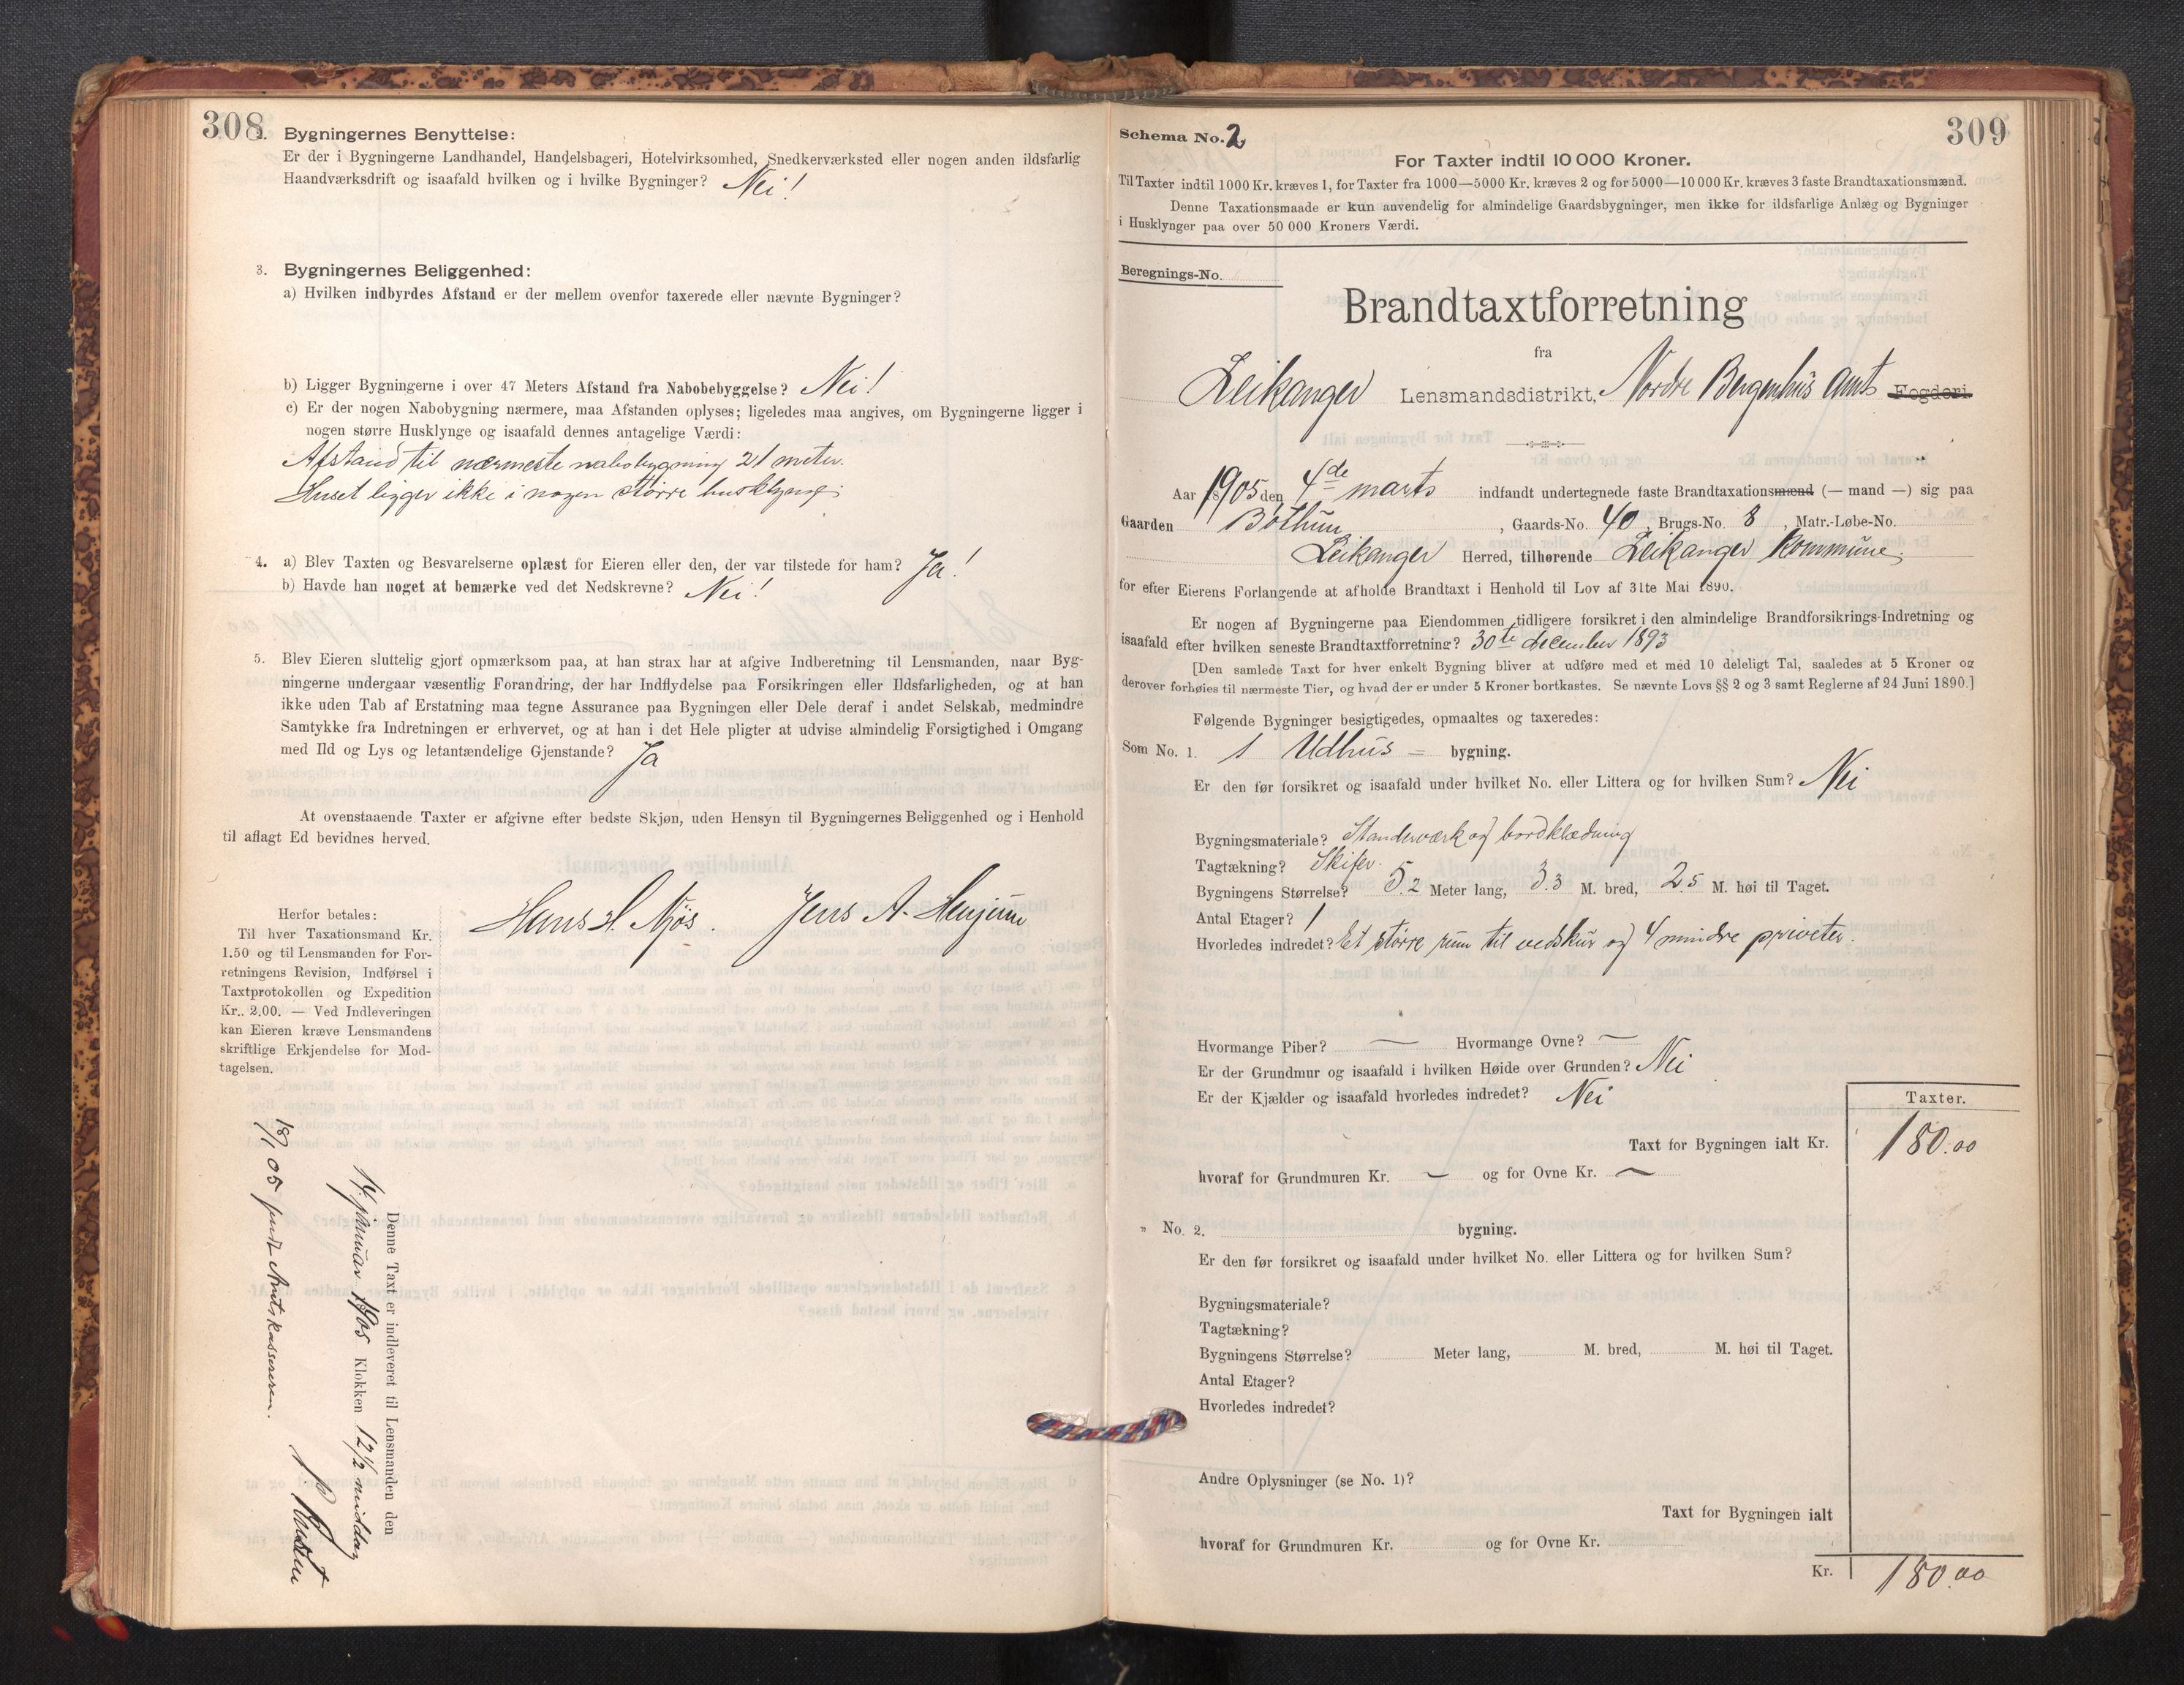 308
2. Bygningernes Benyttelse:
Er der i Bygningerne Landhandel, Handelsbageri, Hotelvirksomhed, Snedkerværksted eller nogen anden ildsfarlig
Haandværksdrift og isaafald hvilken og i hvilke Bygninger? Nei!
3. Bygningernes Beliggenhed:
a) Hvilken indbyrdes Afstand er der mellem ovenfor taxerede eller nævnte Bygninger?
b) Ligger Bygningerne i over 47 Meters Afstand fra Nabobebyggelse? Nei!
c) Er der nogen Nabobygning nærmere, maa Afstanden oplyses; ligeledes maa angives, om Bygningerne ligger i
nogen større Husklynge og isaafald dennes antagelige Værdi:
Afstand til nærmeste nabobygning 21 meter.
Huset ligger ikke i nogen større husklynge;
4. a) Blev Taxten og Besvarelserne oplæst for Eieren eller den, der var tilstede for ham? Ja!
b) Havde han noget at bemærke ved det Nedskrevne? Nei!
5. Blev Eieren sluttelig gjort opmærksom paa, at han strax har at afgive Indberetning til Lensmanden, naar Byg-
ningerne undergaar væsentlig Forandring, der har Indflydelse paa Forsikringen eller Ildsfarligheden, og at han
ikke uden Tab af Erstatning maa tegne Assurance paa Bygningen eller Dele deraf i andet Selskab, medmindre
Samtykke fra Indretningen er erhvervet, og at han i det Hele pligter at udvise almindelig Forsigtighed i Omgang
med Ild og Lys og letantændelige Gjenstande? Ja
At ovenstaaende Taxter er afgivne efter bedste Skjøn, uden Hensyn til Bygningernes Beliggenhed og i Henhold
til aflagt Ed bevidnes herved.
Hans H. Njøs. Jens A. Henjum
Herfor betales:
Til hver Taxationsmand Kr.
1.50 og til Lensmanden for For-
retningens Revision, Indførsel i
Taxtprotokollen og Expedition
Kr.. 2.00. — Ved Indleveringen
kan Eieren kræve Lensmandens
skriftlige Erkjendelse for Mod-
tagelsen.
Denne Taxt er indleveret til Lensmanden den
14. januar 1905 Klokken 12 1/2 middag
18/1 05 sendt Amtskassereren.
309
Schema No. 2
For Taxter indtil 10 000 Kroner.
Til Taxter indtil 1000 Kr. kræves 1, for Taxter fra 1000—5000 Kr. kræves 2 og for 5000—10 000 Kr. kræves 3 faste Brandtaxationsmænd.
Denne Taxationsmaade er kun anvendelig for almindelige Gaardsbygninger, men ikke for ildsfarlige Anlæg og Bygninger
i Husklynger paa over 50 000 Kroners Værdi.
Beregnings-No.
Brandtaxtforretning
fra
Leikanger Lensmandsdistrikt, Nordre Bergenhus Amts Fogderi.
Aar 1905 den 4de marts indfandt undertegnede faste Brandtaxationsmænd (— mand —) sig paa
Gaarden Bøthun, Gaards-No. 40, Brugs-No. 8, Matr.-Løbe-No.
Leikanger Herred, tilhørende Leikanger Kommune;
for efter Eierens Forlangende at afholde Brandtaxt i Henhold til Lov af 31te Mai 1890.
Er nogen af Bygningerne paa Eiendommen tidligere forsikret i den almindelige Brandforsikrings-Indretning og
isaafald efter hvilken seneste Brandtaxtforretning? 30te december 1893
[Den samlede Taxt for hver enkelt Bygning bliver at udføre med et med 10 deleligt Tal, saaledes at 5 Kroner og
derover forhøies til nærmeste Tier, og hvad der er under 5 Kroner bortkastes. Se nævnte Lovs §§ 2 og 3 samt Reglerne af 24 Juni 1890.]
Følgende Bygninger besigtigedes, opmaaltes og taxeredes:
Som No. 1. 1 Udhus = bygning.
Er den før forsikret og isaafald under hvilket No. eller Littera og for hvilken Sum? Nei
Bygningsmateriale? Standerværk og bordklædning
Tagtækning? Skifer.
Bygningens Størrelse? 5.2 Meter lang, 3.3 M. bred, 2.5 M. høi til Taget.
Antal Etager? 1
Hvorledes indredet? Et større rum til vedskur og 4 mindre priveter.
Hvormange Piber? — Hvormange Ovne? —
Er der Grundmur og isaafald i hvilken Høide over Grunden? Nei
Er der Kjælder og isaafald hvorledes indredet? Nei
Taxter.
Taxt for Bygningen ialt Kr. 180.00
hvoraf for Grundmuren Kr. — og for Ovne Kr. —
" No. 2. bygning.
Er den før forsikret og isaafald under hvilket No. eller Littera og for hvilken Sum?
Bygningsmateriale?
Tagtækning?
Bygningens Størrelse? Meter lang, M. bred, M. høi til Taget.
Antal Etager?
Hvorledes indredet?
Andre Oplysninger (se No. 1)?
Taxt for Bygningen ialt
hvoraf for Grundmuren Kr. og for Ovne Kr.
Kr. 180.00